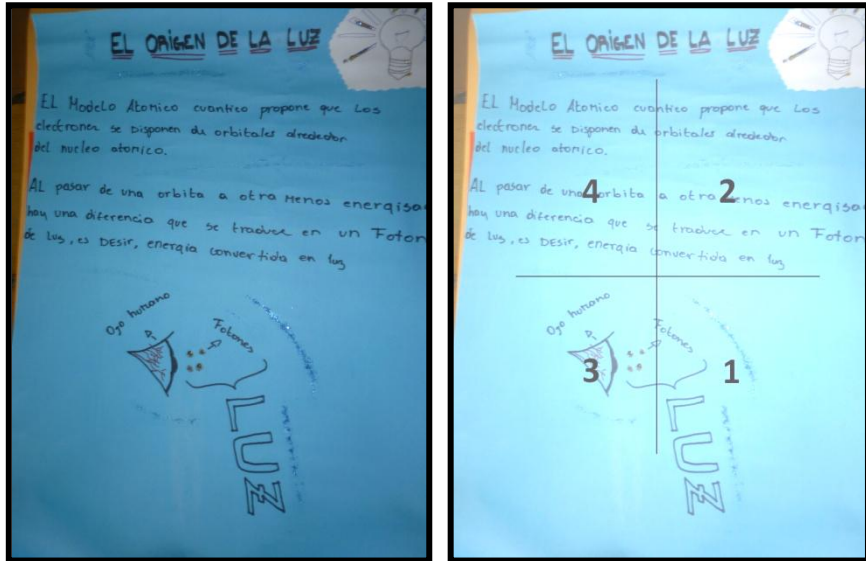 EL ORIGEN DE LA LUZ
EL Modelo Atomico cuantico propone que Los
electrones se Disponen du orbitales alrededor
del nucleo atomico.
AL pasar de una orbita a otra menos energisa
hay una diferencia que se traduce en un Foton
de Luz, es DEsir, energia convertida en luz
Ojo humano
Fotones
LUZ
EL ORIGEN DE LA LUZ
EL Modelo Atomico cuantico propone que Los
electrones se Disponen du orbitales alrededor
del nucleo atomico.
AL pasar de una orbita a otra menos energisa
hay una diferencia que se traduce en un Foton
de Luz, es DEsir, energia convertida en luz
4
2
Ojo humano
Fotones
3
1
LUZ